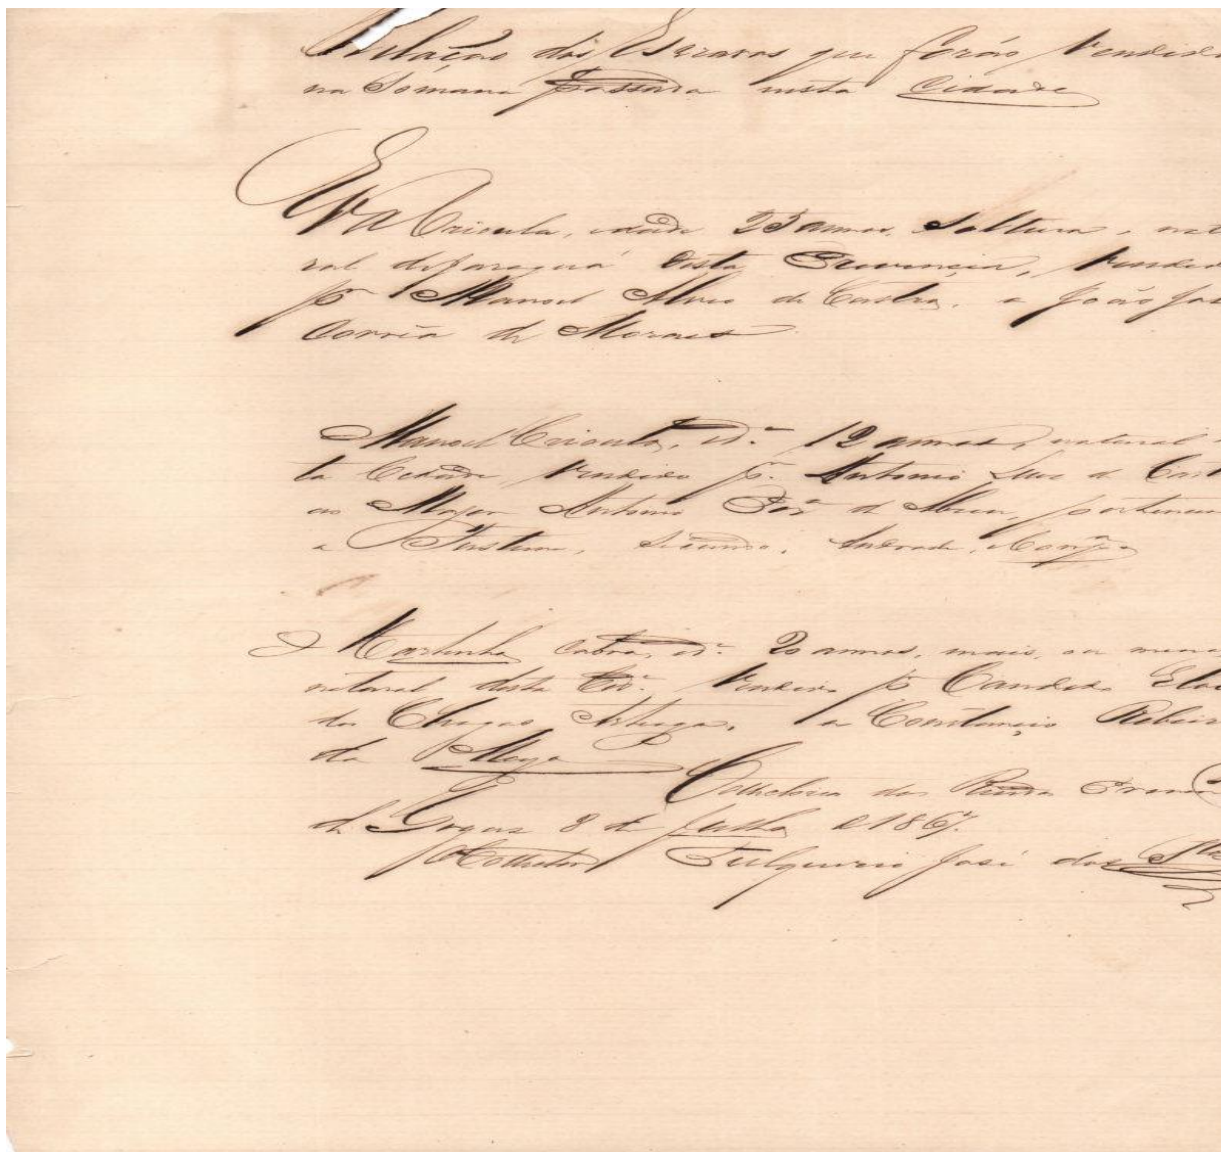 Relação dos Escravos que forão vendidos
na Semana passada nesta Cidade
Eva Crioula, idade 23 annos, Solteira, natu
ral de Jaraguá desta Provincia, vendida
pr Manoel Alves de Castro, a João José
Corrêa de Moraes
Manoel Crioulo, idª 12 annos, natural des
ta Cidade, vendido pr Antonio Luis de Castro
ao Major Antonio Perª de Abreu, pertencente
a Andrade, Compª
Martinha Cabra, idª 20 annos, mais, ou menos
natural desta Cidª vendida pr Candido
das Chagas Artiaga, a Constancio Ribeiro
da Maya
Collectoria das Rendas
de Goyaz 8 de Julho de 1867.
O Collector Fulgencio José dos